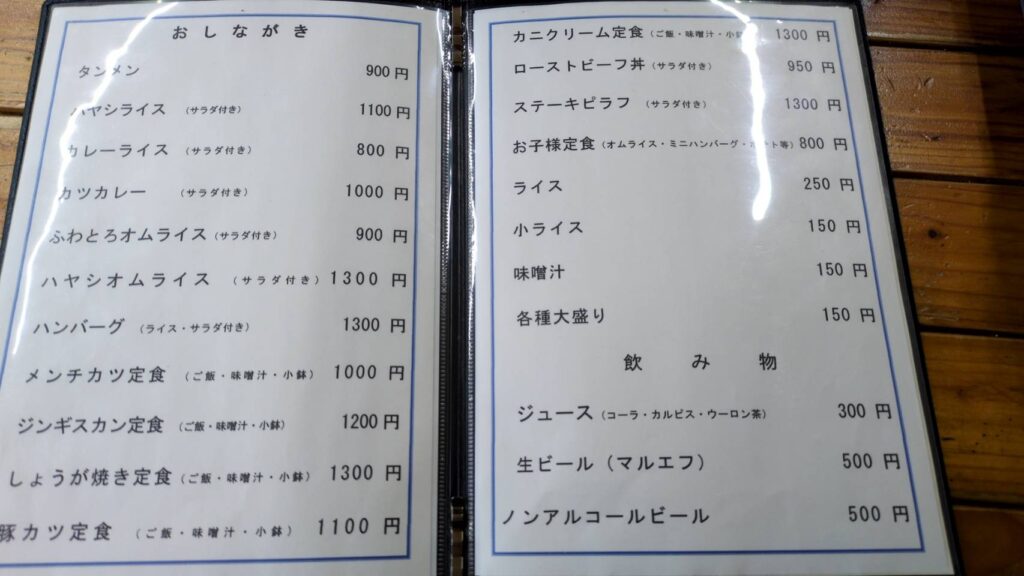 おしながき
タンメン 900円
ハヤシライス (サラダ付き) 1100円
カレーライス (サラダ付き) 800円
カツカレー (サラダ付き) 1000円
ふわとろオムライス(サラダ付き) 900円
ハヤシオムライス (サラダ付き) 1300円
ハンバーグ (ライス・サラダ付き) 1300円
メンチカツ定食 (ご飯・味噌汁・小鉢) 1000円
ジンギスカン定食 (ご飯・味噌汁・小鉢) 1200円
しょうが焼き定食(ご飯・味噌汁・小鉢) 1300円
豚カツ定食 (ご飯・味噌汁・小鉢) 1100円
カニクリーム定食(ご飯・味噌汁・小鉢) 1300円
ローストビーフ丼(サラダ付き) 950円
ステーキピラフ (サラダ付き) 1300円
お子様定食(オムライス・ミニハンバーグ・ポテト等) 800円
ライス 250円
小ライス 150円
味噌汁 150円
各種大盛り 150円
飲み物
ジュース(コーラ・カルピス・ウーロン茶) 300円
生ビール(マルエフ) 500円
ノンアルコールビール 500円